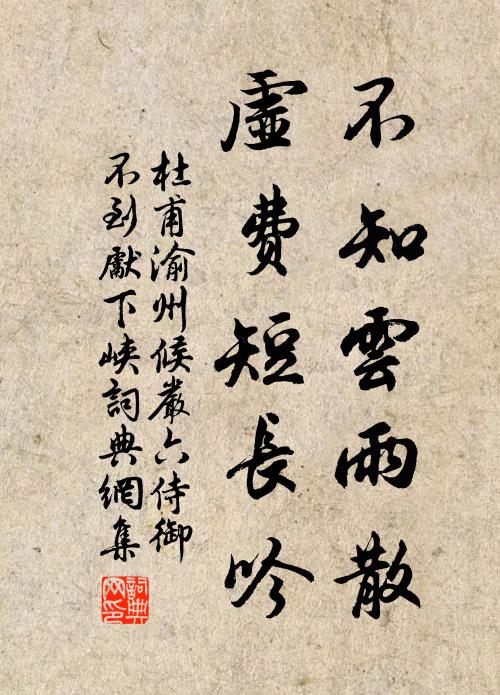 不知雲雨散
虛費短長吟
杜甫渝州候嚴六侍御
不到獻下峽詞典網集
詞典网印